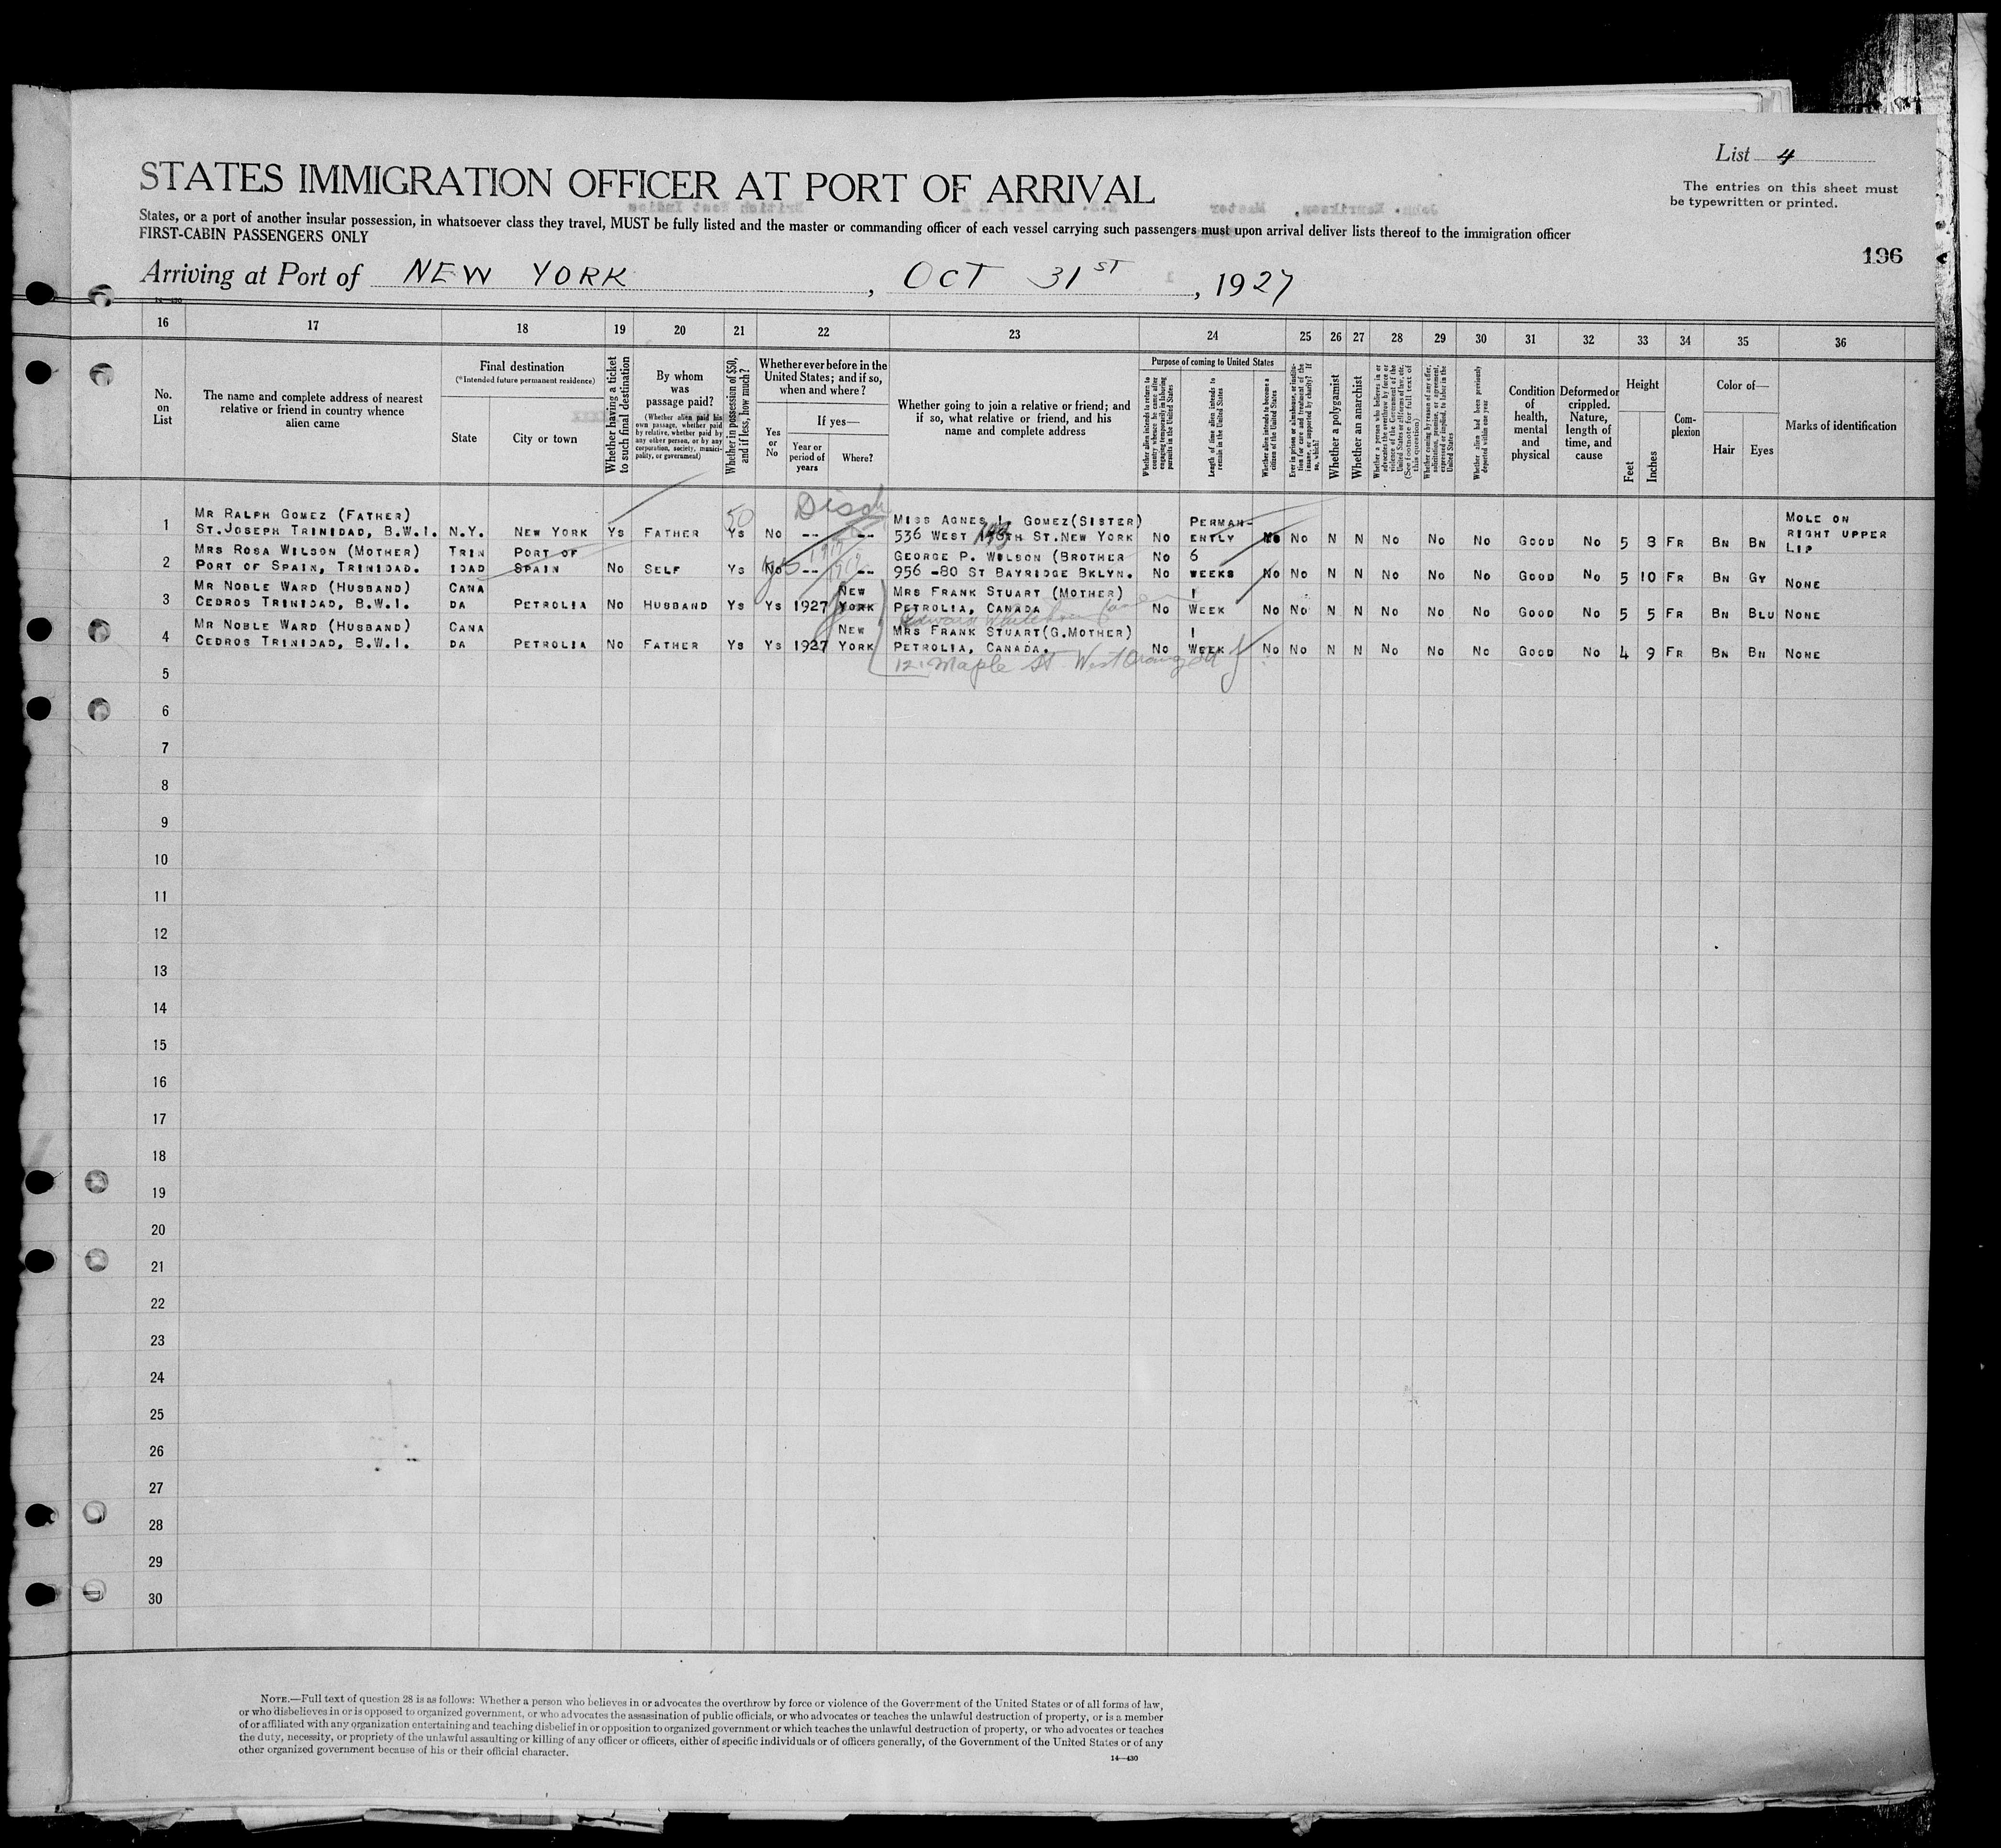 List 4
The entries on this sheet must
be typewritten or printed.
STATES IMMIGRATION OFFICER AT PORT OF ARRIVAL
States, or a port of another insular possession, in whatsoever class they travel, MUST be fully listed and the master or commanding officer of each vessel carrying such passengers must upon arrival deliver lists thereof to the immigration officer
FIRST-CABIN PASSENGERS ONLY
196
Arriving at Port of NEW YORK, OCT 31ST, 1927
14-430
16 17 18 19 20 21 22 23 24 25 26 27 28 29 30 31 32 33 34 35 36
No. on List
The name and complete address of nearest relative or friend in country whence alien came
Final destination
(*Intended future permanent residence)
State
City or town
Whether having a ticket to such final destination
By whom was passage paid?
(Whether alien paid his own passage, whether paid by relative, whether paid by any other person, or by any corporation, society, municipality, or government)
Whether in possession of $50, and if less, how much?
Whether ever before in the United States; and if so, when and where?
Yes or No
If yes—
Year or period of years
Where?
Whether going to join a relative or friend; and if so, what relative or friend, and his name and complete address
Purpose of coming to United States
Whether alien intends to return to country whence he came after engaging temporarily in laboring pursuits in the United States
Length of time alien intends to remain in the United States
Whether alien intends to become a citizen of the United States
Ever in prison or almshouse, institution for care and treatment of the insane, or supported by charity? If so, which?
Whether a polygamist
Whether an anarchist
Whether a person who believes in or advocates the overthrow by force or violence of the Government of the United States or all forms of law, etc. (See footnote for full text of this question)
Whether coming by reason of any offer, solicitation, promise, or agreement, expressed or implied, to labor in the United States
Whether alien had been previously deported within one year
Condition of health, mental and physical
Deformed or crippled. Nature, length of time, and cause
Height
Feet
Inches
Complexion
Color of—
Hair
Eyes
Marks of identification
50 Disch
MR RALPH GOMEZ (FATHER) MISS AGNES L GOMEZ(SISTER) PERMAN- MOLE ON
1 ST.JOSEPH TRINIDAD, B.W.I. N.Y. NEW YORK YS FATHER YS NO -- -- 536 WEST ST.NEW YORK NO ENTLY NO N N NO NO NO GOOD NO 5 8 FR BN BN RIGHT UPPER
MRS ROSA WILSON (MOTHER) TRIN PORT OF GEORGE P. WILSON (BROTHER NO 6 LIP
2 PORT OF SPAIN, TRINIDAD. IDAD SPAIN NO SELF YS NO yes -- -- 956 -80 ST BAYRIDGE BKLYN. NO WEEKS NO NO N N NO NO NO GOOD NO 5 10 FR BN GY NONE
MR NOBLE WARD (HUSBAND) CANA NEW MRS FRANK STUART (MOTHER) 1
3 CEDROS TRINIDAD, B.W.I. DA PETROLIA NO HUSBAND YS YS 1927 YORK PETROLIA, CANADA NO WEEK NO NO N N NO NO NO GOOD NO 5 5 FR BN BLU NONE
MR NOBLE WARD (HUSBAND) CANA NEW MRS FRANK STUART(G.MOTHER) 1
4 CEDROS TRINIDAD, B.W.I. DA PETROLIA NO FATHER YS YS 1927 YORK PETROLIA, CANADA. NO WEEK NO NO N N NO NO NO GOOD NO 4 9 FR BN BN NONE
12 Maple St West Orange
5
6
7
8
9
10
11
12
13
14
15
16
17
18
19
20
21
22
23
24
25
26
27
28
29
30
NOTE.—Full text of question 28 is as follows: Whether a person who believes in or advocates the overthrow by force or violence of the Government of the United States or of all forms of law,
or who disbelieves in or is opposed to organized government, or who advocates the assassination of public officials, or who advocates or teaches the unlawful destruction of property, or is a member
of or affiliated with any organization entertaining and teaching disbelief in or opposition to organized government or which teaches the unlawful destruction of property, or who advocates or teaches
the duty, necessity, or propriety of the unlawful assaulting or killing of any officer or officers, either of specific individuals or of officers generally, of the Government of the United States or of any
other organized government because of his or their official character.
14-430